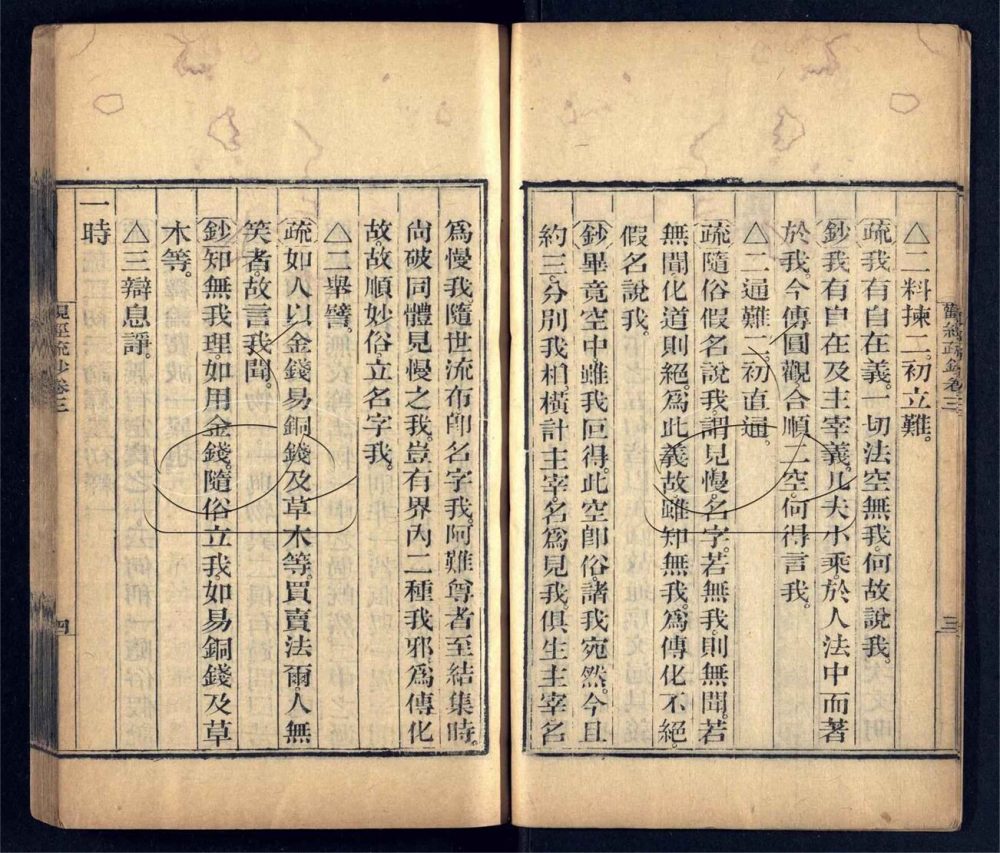 △二料揀二初立難。
疏我有自在義。一切法空無我。何故說我。
鈔我有自在及主宰義。凡夫小乘。於人法中而著
於我。今傳圓觀合順二空。何得言我。
△二通難二。初直通。
疏隨俗假名說我。謂見慢。名字。若無我。則無聞。若
無聞。化道則絕。爲此義故。雖知無我。爲傳化不絕。
假名說我。
鈔畢竟空中。雖我叵得。此空卽俗。諸我宛然。今且
約三。分別我相。橫計主宰。名爲見我。俱生主宰名
爲慢我。隨世流布卽名字我。阿難尊者至結集時。
尙破同體見慢之我。豈有界內二種我邪。爲傳化
故。故順妙俗。立名字我。
△二舉譬。
疏如人以金錢易銅錢及草木等。買賣法爾。人無
笑者。故言我聞。
鈔知無我理。如用金錢。隨俗立我。如易銅錢及草
木等。
△三辯息諍。
一時
觀經疏鈔卷三
三
觀經疏鈔卷三
四